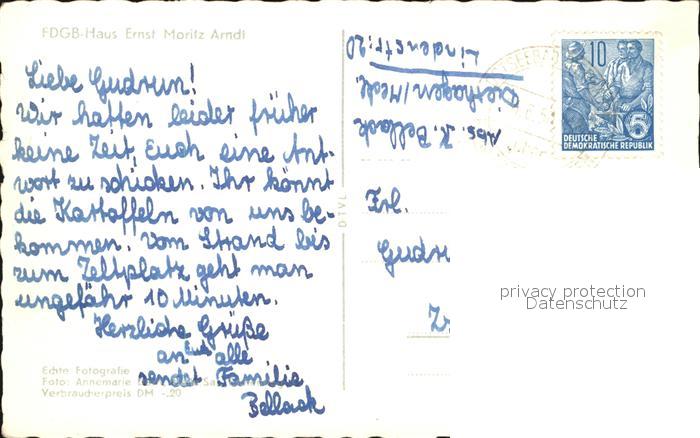 FDGB-Haus Ernst Moritz Arndt
Liebe Gudrun!
Wir hatten leider früher
keine Zeit, Euch eine Ant-
wort zu schicken. Ihr könnt
die Kartoffeln von uns be-
kommen. Vom Strand bis
zum Zeltplatz geht man
ungefähr 10 Minuten.
Herzliche Grüße
an Euch alle
sendet Familie
Bellack
Echte Fotografie
Foto: Annemarie
Verbraucherpreis DM -.20
DTVL
Abs. K. Bellack
Dierhagen/Meckl.
Lindenstr. 20
10
5
DEUTSCHE
DEMOKRATISCHE REPUBLIK
Frl.
Gudru
privacy protection
Datenschutz